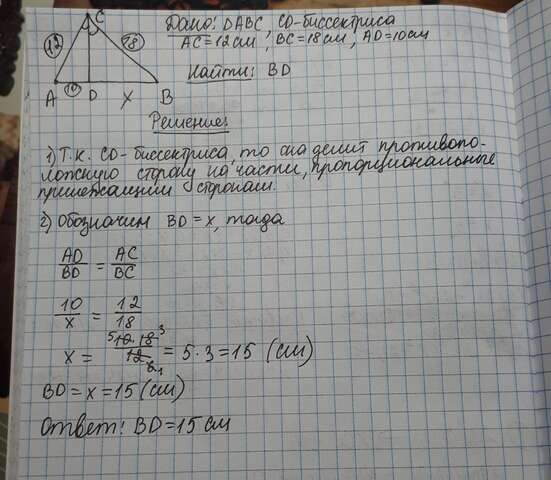 Дано: △ABC CD-биссектриса
AC=12см, BC=18см, AD=10см
Найти: BD
C
12
18
A
10
D
x
B
Решение:
1) Т.к. CD-биссектриса, то она делит противопо-
ложную сторону на части, пропорциональные
прилежащим сторонам.
2) Обозначим BD=x, тогда
AD/BD = AC/BC
10/x = 12/18
x = 10·18/12 = 5·3=15 (см)
BD=x=15(см)
Ответ: BD=15см